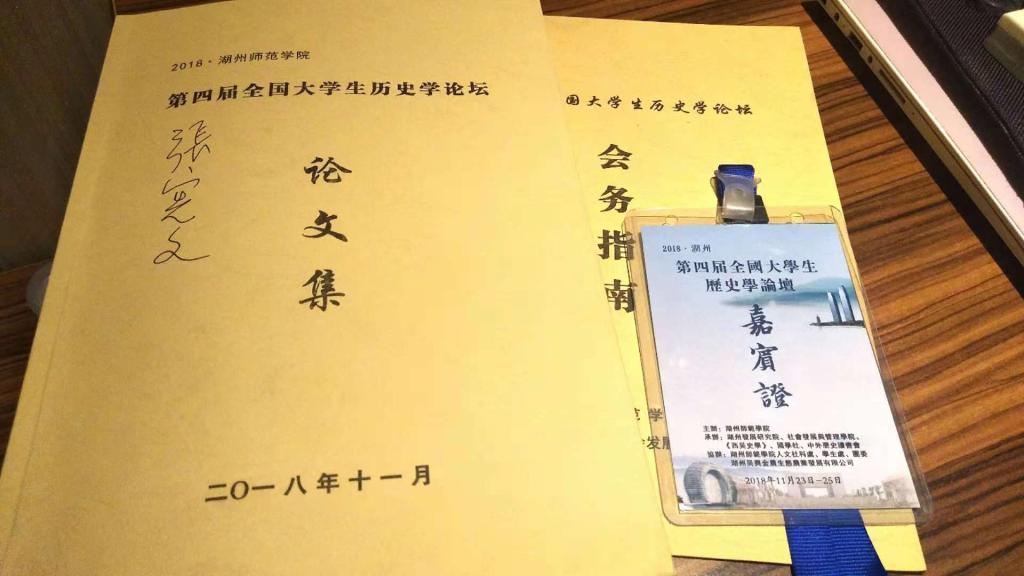 2018·湖州师范学院
第四届全国大学生历史学论坛
張宪文
论文集
二〇一八年十一月
国大学生历史学论坛
会务指南
学
发展
2018·湖州
第四届全國大學生
歷史學論壇
嘉賓證
主辦：湖州師範學院
承辦：湖州發展研究院、社會發展與管理學院、
《西吳史學》、國學社、中外歷史讀書會
協辦：湖州師範學院人文社科處、學生處、團委
湖州吳興金農生態農業發展有限公司
2018年11月23日-25日